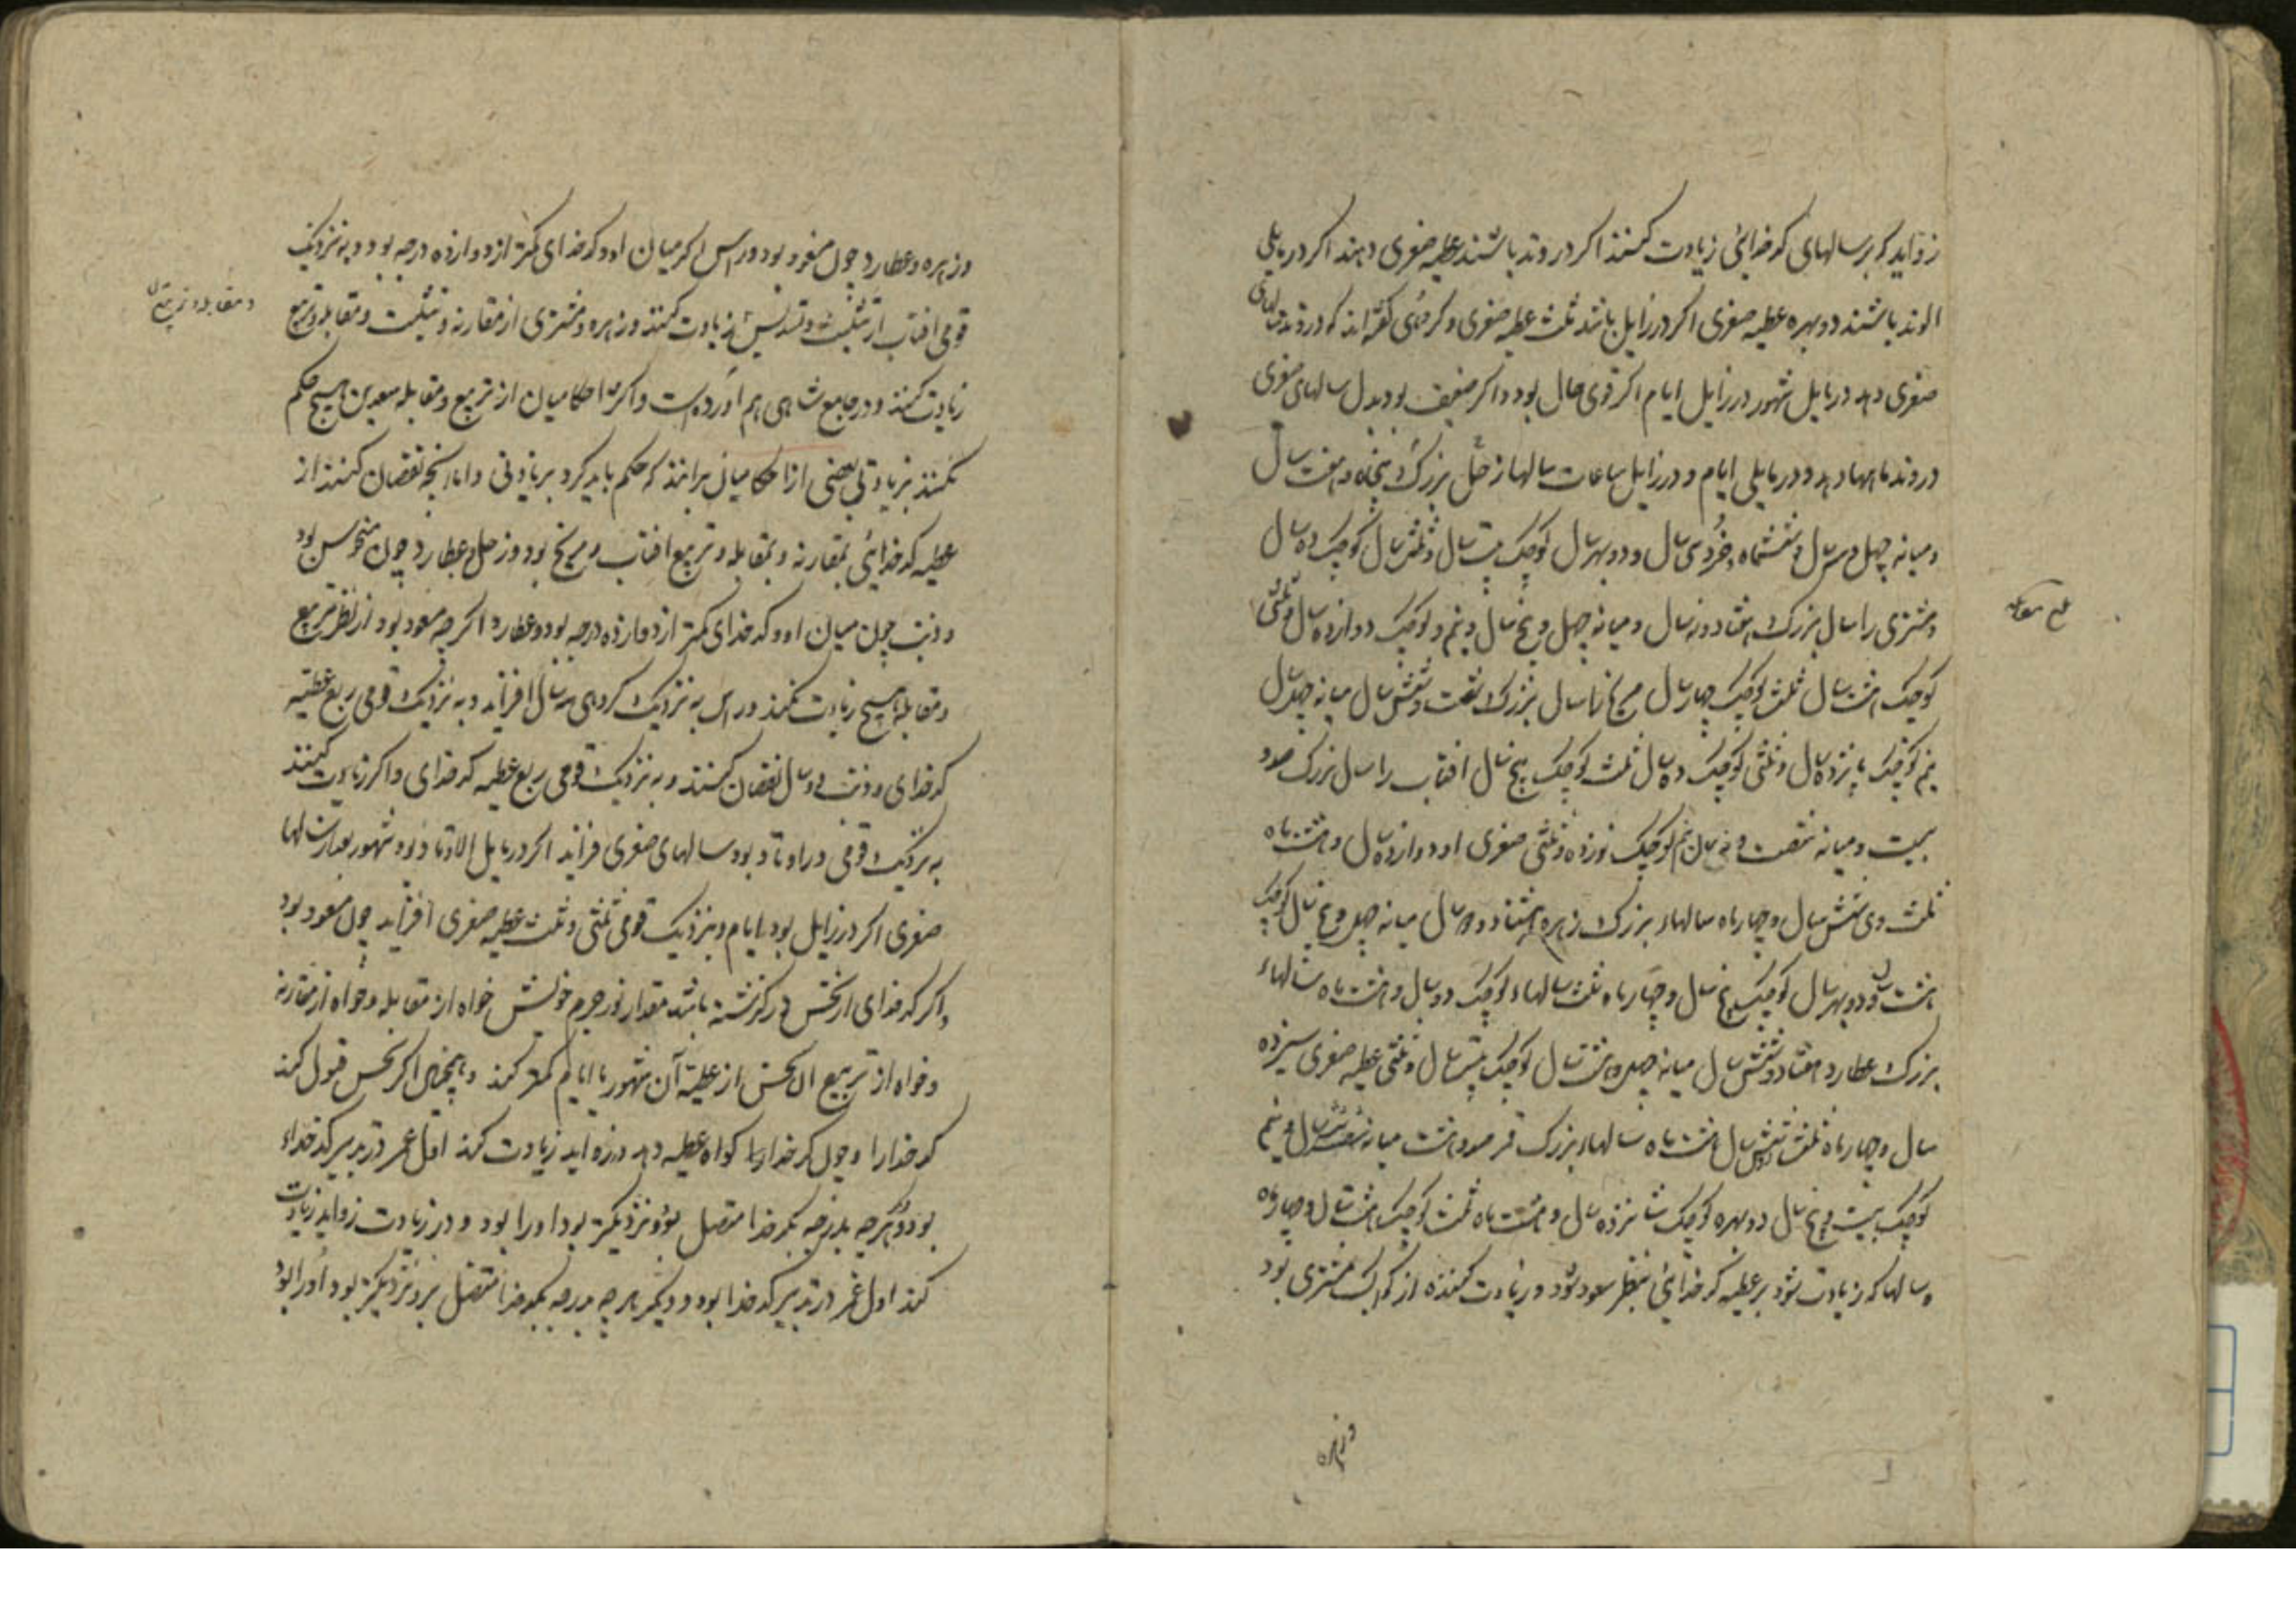 زواید که بر سالهای کدخدائی زیادت کنند اکر در وتد باشند عطیه صغری دهند اکر در مایلی
الوتد باشند دو بهره عطیه صغری اکر در زایل باشد ثلث عطیه صغری و کروهی کفته اند که در وتد سالهای
صغری دهد در مایل شهور در زایل ایام اکر قوی حال بود و اکر ضعیف بود بدل سالهای صغری
در وتد ماهها دهد و در مایلی ایام و در زایل ساعات سالها زحل بزرک پنجاه و هفت سال
و میانه چهل و سه سال و ششماه و خرد سی سال و دو بهر سال کوچک بیست سال و ثلث سال کوچک ده سال
و مشتری را سال بزرک هفتاد و نه سال و میانه چهل و پنج سال و نیم و کوچک دوازده سال و ثلثی
کوچک هشت سال ثلث کوچک چهار سال مریخ را سال بزرک شصت و شش سال میانه چهل سال
نیم کوچک پانزده سال و ثلثی کوچک ده سال ثلث کوچک پنج سال افتاب را سال بزرک صد و
بیست و میانه شصت و نه سال نیم کوچک نوزده و ثلثی صغری او دوازده سال و هشت ماه
ثلث وی شش سال و چهار ماه سالهاء بزرک زهره هشتاد و دو سال میانه چهل و پنج سال کوچک
هشت سال و دو بهر سال کوچک پنج سال و چهار ماه ثلث سالهاء کوچک دو سال و هشت ماه سالهاء
بزرک عطارد هفتاد و شش سال میانه چهل و هشت سال کوچک بیست سال و ثلثی عطیه صغری سیزده
سال و چهار ماه ثلث شش سال هشت ماه سالهاء بزرک قمر صد و هشت میانه شصت و شش سال و نیم
کوچک بیست و پنج سال دو بهره کوچک شانزده سال و هشت ماه ثلث کوچک هشت سال و چهار ماه
و سالها که زیادت شود بر عطیه کدخدائی بنظر سعود بود و زیادت کننده از کواکب مشتری بود
وزهره
وزهره و عطارد چون مسعود بود و راس اکر میان او و کدخدای کمتر از دوازده درجه بود و به نزدیک
قومی افتاب از تثلیث و تسدیس زیادت کند وزهره و مشتری از مقارنه و تثلیث و مقابله و تربیع
زیادت کند و در جامع شاهی هم آورده است و اکثر احکامیان از تربیع و مقابله سعدین هیچ حکم
نکنند بزیادتی بعضی از احکامیان برانند که حکم باید کرد بر یادتی و اما انچه نقصان کنند از
عطیه کدخدائی بمقارنه و بمقابله و تربیع افتاب و مریخ بود و زحل و عطارد چون منحوس بود
و ذنب چون میان او و کدخدای کمتر از دوازده درجه بود و عطارد اکر چه مسعود بود از نظر تربیع
و مقابله هیچ زیادت نکند و راس به نزدیک کروهی سه سال افزاید و به نزدیک قومی ربع عطیه
کدخدای و ذنب دو سال نقصان کنند و به نزدیک قومی ربع عطیه کدخدای و اکر زیادت کنند
به نزدیک قومی در اوتاد بود سالهای صغری فزاید اکر در مایل الاوتاد بود شهور بعدد سالها
صغری اکر در زایل بود ایام و بنزدیک قومی ثلثی و ثلث عطیه صغری افزاید چون مسعود بود
و اکر کدخدای از نحس درکذشته باشد مقدار نور جرم خویش خواه از مقابله و خواه از مقارنه
و خواه از تربیع ان نحس از عطیه آن شهور یا ایام کمتر کند و همچنان اکر نحس قبول کند
کدخدا را و چون کدخدا را کواه عطیه دهد و زواید زیادت کند اول عمر در تدبیر کدخداء
بود و هرچه بدرجه بکدخدا متصل بود و نزدیکتر بود او را بود و در زیادت زواید زیادت
کند اول عمر در تدبیر کدخدا بود و دیکر هر چه بدرجه بکدخدا متصل بود نزدیکتر بود او را بود